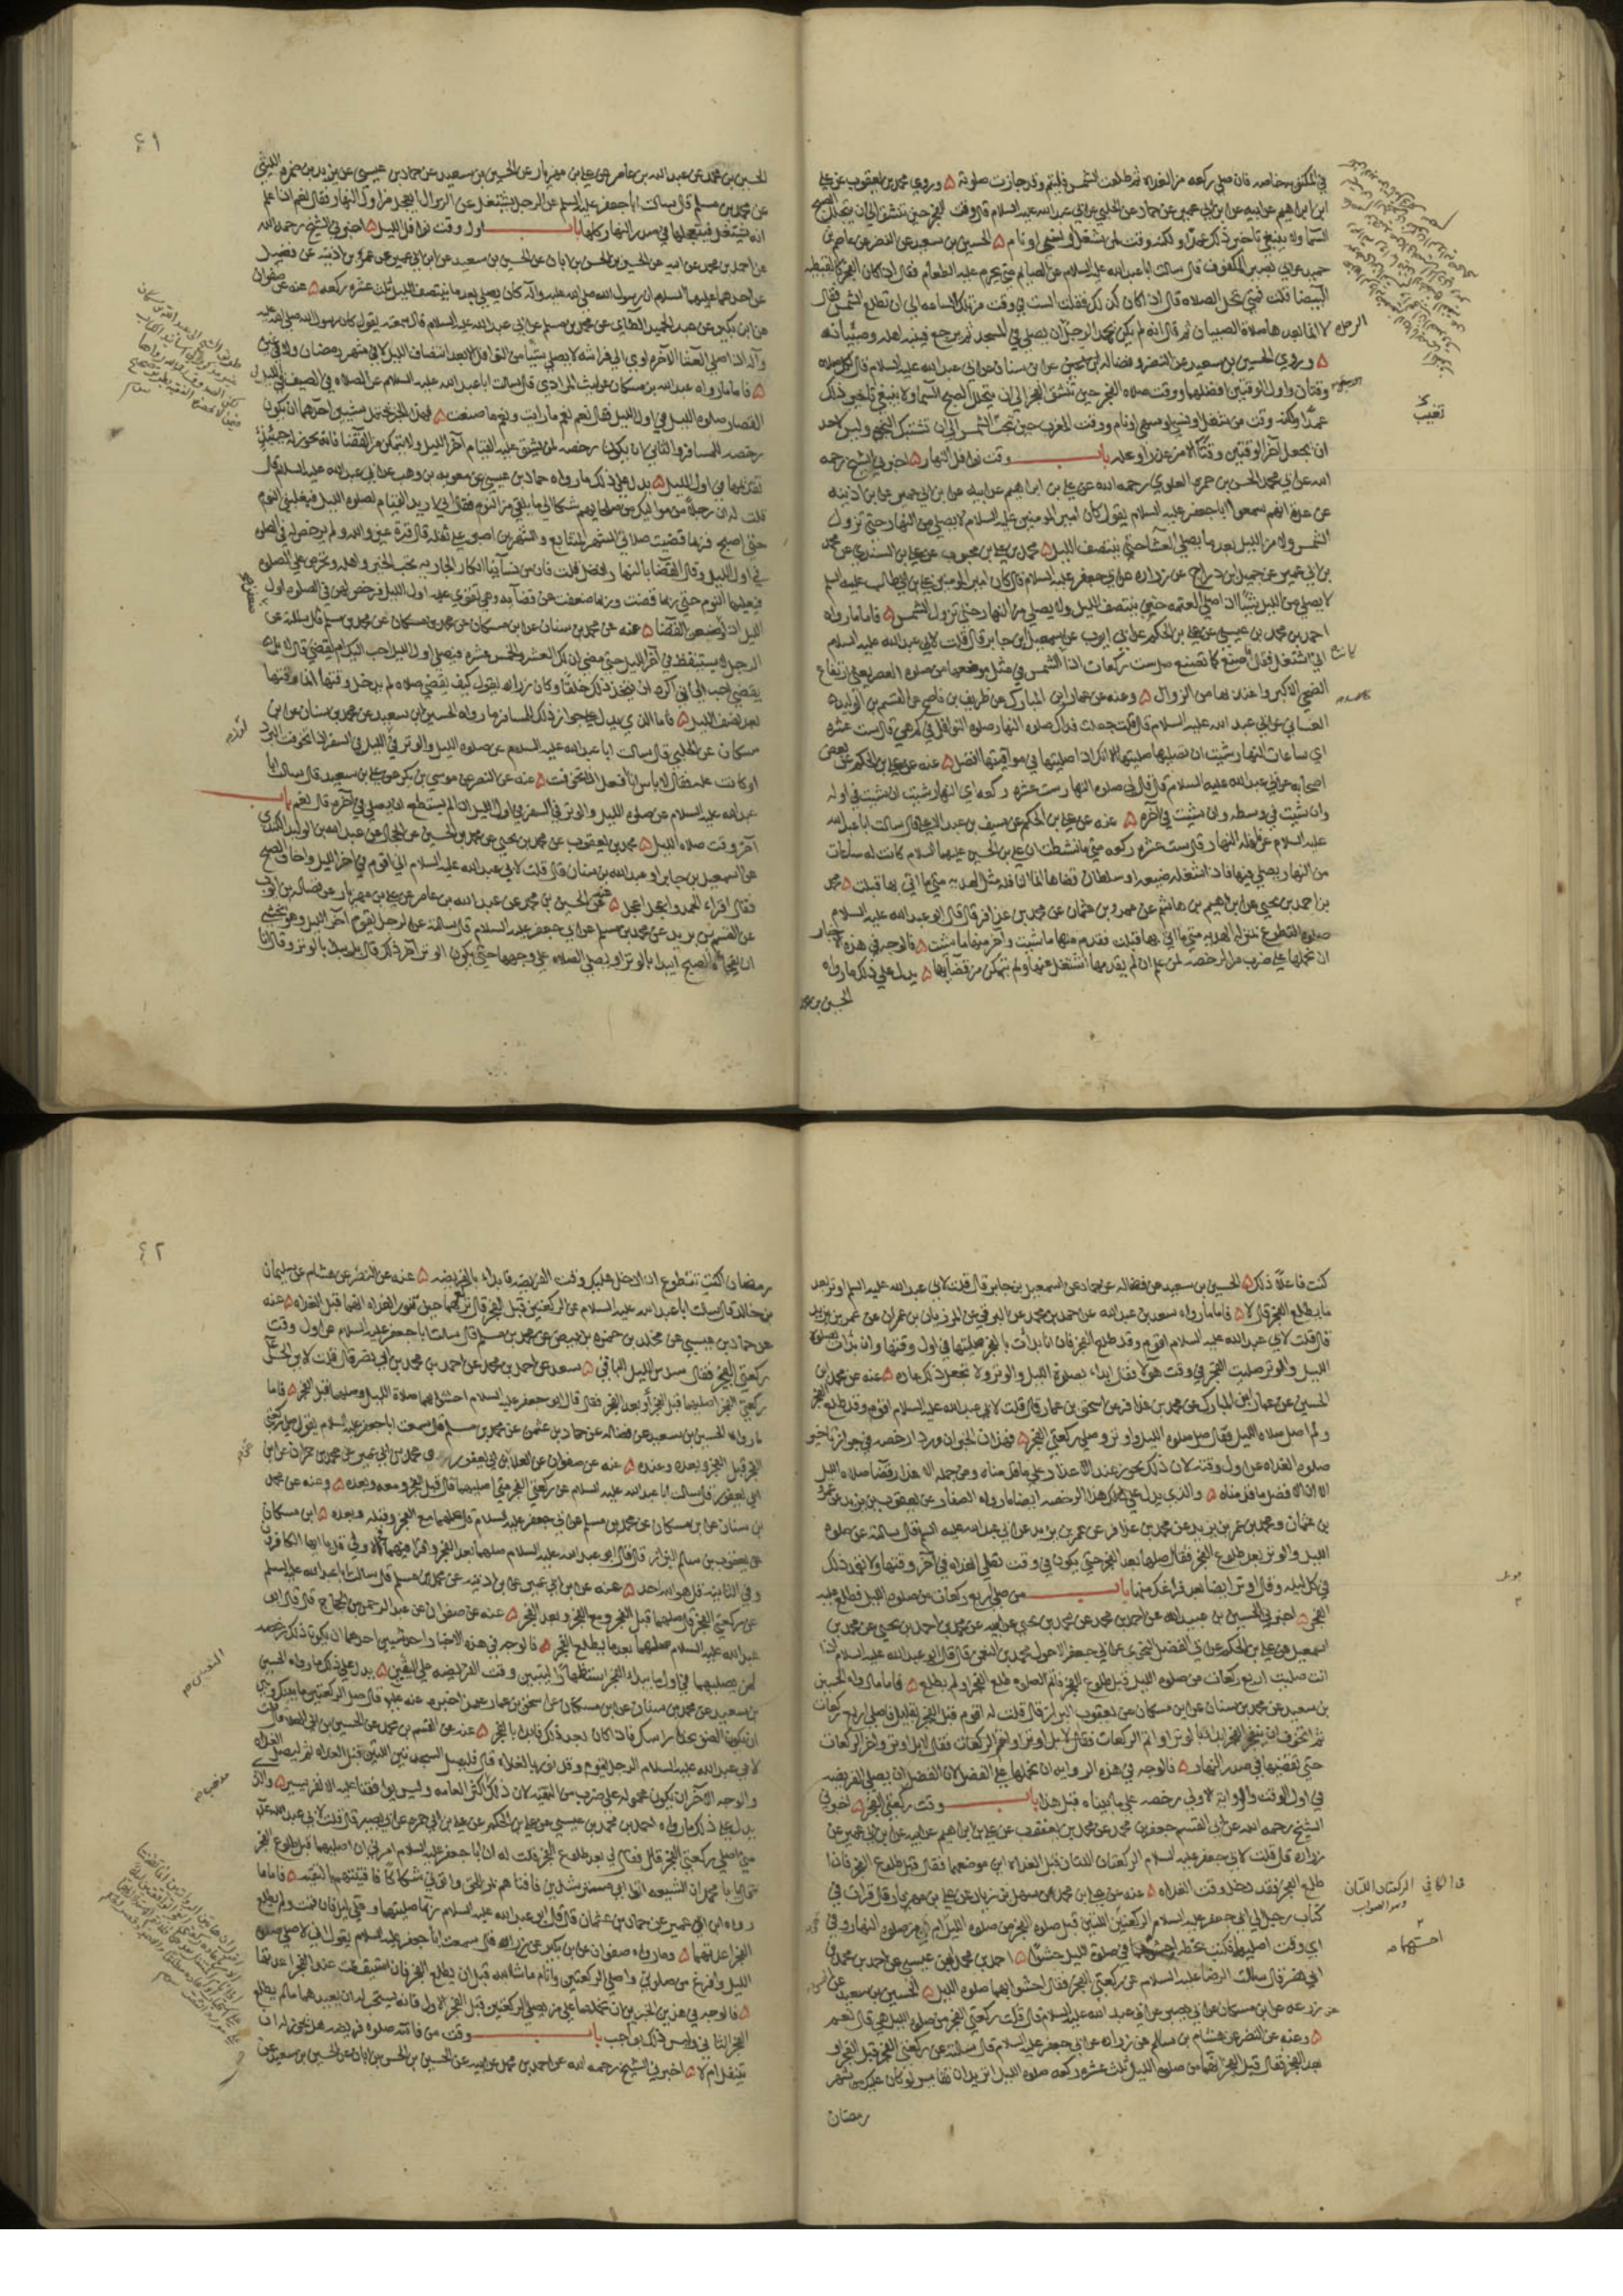 في المكفوف خاصه فان صلي ركعه من الغداه ثم طلعت الشمس فليتم وقد جازت صلوته ۵ وروي محمد بن يعقوب عن علي
ابن ابراهيم عن ابيه عن ابن ابي عمير عن حماد عن الحلبي عن ابي عبد الله عليه السلام قال وقت الفجر حين ينشق الي ان يتجلل الصبح
السما ولا ينبغي تاخير ذلك عمدا ولكنه وقت لمن شغل او نسي او نام ۵ الحسين بن سعيد عن النضر عن عاصم بن
حميد عن ابي بصير المكفوف قال سالت ابا عبد الله عليه السلام عن الصايم متي يحرم عليه الطعام فقال اذا كان الفجر كالقبطيه
البيضا قلت فمتي تحل الصلاه قال اذا كان كذلك فقلت الست في وقت من تلك الساعه الي ان تطلع الشمس فقال
لا انما نعدها صلاة الصبيان ثم قال انه لم يكن يحمد الرجل ان يصلي في المسجد ثم يرجع فينبه اهله وصبيانه
۵ وروي الحسين بن سعيد عن النضر وفضاله عن ابن سنان عن ابي عبد الله عليه السلام قال لكل صلاه
وقتان واول الوقتين افضلهما ووقت صلاه الفجر حين ينشق الفجر الي ان يتجلل الصبح السما ولا ينبغي تاخير ذلك
عمدا ولكنه وقت من شغل او نسي او سهي او نام ووقت المغرب حين تجب الشمس الي ان تشتبك النجوم وليس لاحد
ان يجعل آخر الوقتين وقتا الا من عذر او عله باب وقت نوافل النهار ۵ اخبرني الشيخ رحمه
الله عن ابي محمد الحسن بن حمزه العلوي رحمه الله عن علي بن ابراهيم عن ابيه عن ابن ابي عمير عن ابن اذينه
عن عدة انهم سمعوا ابا جعفر عليه السلام يقول كان امير المومنين عليه السلام لا يصلي من النهار حتي تزول
الشمس ولا من الليل بعد ما يصلي العشا حتي ينتصف الليل ۵ محمد بن علي بن محبوب عن علي بن السندي عن محمد
بن ابي عمير عن جميل بن دراج عن زراره عن ابي جعفر عليه السلام قال كان امير المومنين علي بن ابي طالب عليه السلم
لا يصلي من الليل شيئا اذا صلي العتمه حتي ينتصف الليل ولا يصلي من النهار حتي تزول الشمس ۵ فاما ما رواه
احمد بن محمد بن عيسي عن علي بن الحكم عن ابي ايوب عن اسمعيل بن جابر قال قلت لابي عبد الله عليه السلام
اني اشتغل فقال فاصنع كما تصنع صل ست ركعات اذا كانت الشمس في مثل موضعها من صلوه العصر يعني ارتفاع
الضحي الاكبر واعتد بها من الزوال ۵ وعنه عن عمار بن المبارك عن ظريف بن ناصح عن القسم بن الوليد
الغساني عن ابي عبد الله عليه السلام قال قلت جعلت فداك صلوه النهار صلوه النوافل في كم هي قال ست عشره
اي ساعات النهار شئت ان تصليها صليتها الا انك ان صليتها في مواقيتها افضل ۵ عنه عن علي بن الحكم عن بعض
اصحابه عن ابي عبد الله عليه السلام قال قال لي صلوه النهار ست عشره ركعه اي النهار شئت ان شئت في اوله
وان شئت في وسطه وان شئت في آخره ۵ عنه عن علي بن الحكم عن سيف بن عبد الاعلي قال سالت ابا عبد الله
عليه السلام عن نافله النهار قال ست عشره ركعه متي ما نشطت ان علي بن الحسين عليهما السلام كانت له ساعات
من النهار يصلي فيها فاذا شغله ضيعه او سلطان قضاها انما النافله مثل الهديه متي ما اتي بها قبلت ۵ محمد
بن احمد بن يحيي عن ابراهيم بن هاشم عن عمرو بن عثمان عن محمد بن عذافر قال قال ابو عبد الله عليه السلام
صلوة التطوع بمنزله الهديه متي ما اتي بها قبلت فقدم منها ما شئت واخر منها ما شئت ۵ فالوجه في هذه الاخبار
ان نحملها علي ضرب من الرخصه لمن علم ان لم يقدمها اشتغل عنها ولم يتمكن من قضآيها ۵ يدل علي ذلك ما رواه
الحسين بن محمد
٤١
الحسين بن محمد عن عبد الله بن عامر عن علي بن مهزيار عن الحسين بن سعيد عن حماد بن عيسي عن يزيد بن ضمره الليثي
عن محمد بن مسلم قال سالت ابا جعفر عليه السلم عن الرجل يشتغل عن الزوال ايعجل من اول النهار فقال نعم اذا علم
انه يشتغل فيتعجلها في صدر النهار كلها باب اول وقت نوافل الليل ۵ اخبرني الشيخ رحمه الله
عن احمد بن محمد عن ابيه عن الحسين بن الحسن بن ابان عن الحسين بن سعيد عن ابن ابي عمير عن عمر بن اذينه عن فضيل
عن احدهما عليهما السلام ان رسول الله صلي الله عليه وآله كان يصلي بعد ما ينتصف الليل ثلث عشره ركعه ۵ عنه عن صفوان
عن ابن بكير عن عبد الحميد الطائي عن محمد بن مسلم عن ابي عبد الله عليه السلام قال سمعته يقول كان رسول الله صلي الله عليه
وآله اذا صلي العشا الآخره اوي الي فراشه لا يصلي شيئا من النوافل الا بعد انتصاف الليل لا في شهر رمضان ولا في غيره
۵ فاما ما رواه عبد الله بن مسكان عن ليث المرادي قال سالت ابا عبد الله عليه السلام عن الصلاه في الصيف في الليالي
القصار صلوه الليل في اول الليل فقال نعم نعم ما رايت ونعم ما صنعت ۵ فهذا الخبر يحتمل شيئين احدهما ان يكون
رخصه للمسافر والثاني ان يكون رخصه لمن يشق عليه القيام آخر الليل ولا يتمكن من القضا فانه يجوز له حينئذ
تقديمها في اول الليل ۵ يدل علي ذلك ما رواه حماد بن عيسي عن معويه بن وهب عن ابي عبد الله عليه السلام قال
قلت له ان رجلا من مواليك من صلحايهم شكا الي ما يلقي من النوم فقال اني اريد القيام لصلوه الليل فيغلبني النوم
حتي اصبح فربما قضيت صلاتي الشهر المتتابع والشهرين اصبر علي ثقله قال قرة عين والله ولم يرخص له في الصلوه
في اول الليل وقال القضا بالنهار افضل قلت فان من نسآينا ابكار الجاريه تحب الخير واهله وتحرص علي الصلوه
فيغلبها النوم حتي ربما قضت وربما ضعفت عن قضآيه وهي تقوي عليه اول الليل فرخص لهن في الصلوه اول
الليل اذا ضيعن القضآ ۵ عنه عن محمد بن سنان عن ابن مسكان عن محمد بن مسلم قال سالته عن
الرجل لا يستيقظ في آخر الليل حتي يمضي لذلك العشر والخمس عشره فيصلي اول الليل احب اليك ام يقضي قال لا بل
يقضي احب الي اني اكره ان يتخذ ذلك خلقا وكان زراره يقول كيف يقضي صلاه لم يدخل وقتها انما وقتها
بعد نصف الليل ۵ فاما الذي يدل علي جواز ذلك للمسافر ما رواه الحسين بن سعيد عن محمد بن سنان عن ابن
مسكان عن الحلبي قال سالت ابا عبد الله عليه السلام عن صلوه الليل والوتر في الليل في السفر اذا تخوفت البرد
او كانت عله فقال لا باس انا افعل اذا تخوفت ۵ عنه عن النضر عن موسي بن بكر عن علي بن سعيد قال سالت ابا
عبد الله عليه السلام عن صلوه الليل والوتر في السفر في اول الليل اذا لم يستطع ان يصلي في آخره قال نعم باب
آخر وقت صلاه الليل ۵ محمد بن يعقوب عن محمد بن يحيي عن محمد بن الحسين عن الحجال عن عبد الله بن الوليد الكندي
عن اسمعيل بن جابر او عبد الله بن سنان قال قلت لابي عبد الله عليه السلام اني اقوم في آخر الليل واخاف الصبح
فقال اقراء الحمد واعجل اعجل ۵ عنه عن الحسين بن محمد عن عبد الله بن عامر عن علي بن مهزيار عن فضاله بن ايوب
عن القسم بن بريد عن محمد بن مسلم عن ابي جعفر عليه السلام قال سالته عن الرجل يقوم آخر الليل وهو يخشي
ان يفجاه الصبح ايبدا بالوتر او يصلي الصلاه علي وجهها حتي يكون الوتر آخر ذلك قال بل يبدا بالوتر وقال انا
كنت فاعلا ذلك ۵ الحسين بن سعيد عن فضاله عن حماد عن اسمعيل بن جابر قال قلت لابي عبد الله عليه السلم اوتر بعد
ما يطلع الفجر قال لا ۵ فاما ما رواه سعد بن عبد الله عن احمد بن محمد عن البرقي عن المرزبان بن عمران عن عمر بن يزيد
قال قلت لابي عبد الله عليه السلام اقوم وقد طلع الفجر فان انا بدات بالفجر صليتها في اول وقتها وان بدات بصلوه
الليل والوتر صليت الفجر في وقت هولا فقال ابداء بصلوة الليل والوتر ولا تجعل ذلك عاده ۵ عنه عن محمد بن
الحسين عن عمار بن المبارك عن محمد بن عذافر عن اسحق بن عمار قال قلت لابي عبد الله عليه السلام اقوم وقد طلع الفجر
ولم اصل صلاه الليل فقال صل صلوه الليل واوتر وصلي ركعتي الفجر ۵ فهذان الخبران وردا رخصه في جواز تاخير
صلوه الغداه عن اول وقته لان ذلك يجوز عند الاعذار علي ما قدمناه ومن جمله الاعذار قضآ صلاه الليل
الا ان الافضل ما قدمناه ۵ والذي يدل علي هذا الرخصه ايضا ما رواه الصفار عن يعقوب بن يزيد عن عمرو
بن عثمان ومحمد بن عمر بن يزيد عن محمد بن عذافر عن عمر بن يزيد عن ابي عبد الله عليه السلم قال سالته عن صلوه
الليل والوتر بعد طلوع الفجر فقال صلها بعد الفجر حتي يكون في وقت تصلي الغداه في آخر وقتها ولا تعمد ذلك
في كل ليله وقال اوتر ايضا بعد فراغك منها باب من صلي اربع ركعات من صلوه الليل فطلع عليه
الفجر ۵ اخبرني الحسين بن عبيد الله عن احمد بن محمد بن يحيي عن ابيه عن محمد بن احمد بن يحيي عن محمد بن
اسمعيل عن علي بن الحكم عن ابي الفضل النحوي عن ابي جعفر الاحول محمد بن النعمن قال قال ابو عبد الله عليه السلام اذا
انت صليت اربع ركعات من صلوه الليل قبل طلوع الفجر فاتم الصلوه طلع الفجر او لم يطلع ۵ فاما ما رواه الحسين
بن سعيد عن محمد بن سنان عن ابن مسكان عن يعقوب البزاز قال قلت له اقوم قبل الفجر بقليل فاصلي اربع ركعات
ثم اتخوف ان ينفجر الفجر ابدا بالوتر او اتم الركعات فقال لا بل اوتر واخر الركعات
حتي تقضيها في صدر النهار ۵ فالوجه في هذه الروايه ان نحملها علي الفضل لان الفضل ان يصلي الفريضه
في اول الوقت والرواية الاولي رخصه علي ما بيناه قبل هذا باب وقت ركعتي الفجر ۵ اخبرني
الشيخ رحمه الله عن ابي القسم جعفر بن محمد عن محمد بن يعقوب عن علي بن ابراهيم عن ابيه عن ابن ابي عمير عن
زراره قال قلت لابي جعفر عليه السلام الركعتان اللتان قبل الغداه اين موضعهما فقال قبل طلوع الفجر فاذا
طلع الفجر فقد دخل وقت الغداه ۵ عنه عن علي بن محمد عن سهل بن زياد عن علي بن مهزيار قال قرات في
كتاب رجل الي ابي جعفر عليه السلام الركعتين اللتين قبل صلوه الفجر من صلوه الليل ام من صلوه النهار وفي
اي وقت اصليهما فكتب بخطه احشهما في صلوة الليل حشوا ۵ احمد بن محمد بن عيسي عن احمد بن محمد بن
ابي نصر قال سالت الرضا عليه السلام عن ركعتي الفجر فقال احشوا بهما صلوه الليل ۵ الحسين بن سعيد عن
عن ابن مسكان عن ابي بصير عن ابي عبد الله عليه السلام قال قلت ركعتي الفجر من صلوه الليل هي قال نعم
۵ وعنه عن النضر عن هشام بن سالم عن زراره عن ابي جعفر عليه السلام قال سالته عن ركعتي الفجر قبل الفجر او
بعد الفجر فقال قبل الفجر انهما من صلوه الليل ثلث عشره ركعه صلوه الليل اتريد ان تقايس لو كان عليك من شهر
رمضان
في الكافي الركعتان اللتان
وهو الصواب
احشهما
٤٢
رمضان اكنت تتطوع اذا دخل عليك وقت الفريضه فابداء بالفريضه ۵ عنه عن النضر عن هشام عن سليمان
بن خالد قال سالت ابا عبد الله عليه السلام عن الركعتين قبل الفجر قال تركعهما حين تنور الغداه انهما قبل الغداه ۵ عنه
عن حماد بن عيسي عن محمد بن حمزه بن بيض عن محمد بن مسلم قال سالت ابا جعفر عليه السلام عن اول وقت
ركعتي الفجر فقال سدس الليل الباقي ۵ سعد عن احمد بن محمد عن احمد بن محمد بن ابي نصر قال قلت لابي الحسن
ركعتي الفجر اصليهما قبل الفجر او بعد الفجر فقال قال ابو جعفر عليه السلام احش بهما صلاة الليل وصلهما قبل الفجر ۵ فاما
ما رواه الحسين بن سعيد عن فضاله عن حماد بن عثمن عن محمد بن مسلم قال سمعت ابا جعفر عليه السلام يقول صل ركعتي
الفجر قبل الفجر وبعده وعنده ۵ عنه عن صفوان عن العلا عن ابن ابي يعفور ومحمد بن ابي عمير عن محمد بن حمران عن ابن
ابي يعفور قال سالت ابا عبد الله عليه السلام عن ركعتي الفجر متي اصليهما قال قبل الفجر ومعه وبعده ۵ وعنه عن محمد
بن سنان عن ابن مسكان عن محمد بن مسلم عن ابي جعفر عليه السلام قال صلهما مع الفجر وقبله وبعده ۵ ابن مسكان
عن يعقوب بن سالم البزاز قال قال ابو عبد الله عليه السلام صلهما بعد الفجر واقرا فيهما في الاولي قل يا ايها الكافرون
وفي الثانيه قل هو الله احد ۵ عنه عن ابن ابي عمير عن ابن اذينه عن محمد بن مسلم قال سالت ابا عبد الله عليه السلم
عن ركعتي الفجر قال صلهما قبل الفجر ومع الفجر وبعد الفجر ۵ عنه عن صفوان عن عبد الرحمن بن الحجاج قال قال ابو
عبد الله عليه السلام صلهما بعد ما يطلع الفجر ۵ فالوجه في هذه الاخبار احد شيئين احدهما ان يكون ذلك رخصه
لمن يصليهما في اول ما يبدو الفجر استظهارا ليتبين وقت الفريضه علي اليقين ۵ يدل علي ذلك ما رواه الحسين
بن سعيد عن محمد بن سنان عن ابن مسكان عن اسحق بن عمار عمن اخبره عنه عليه قال صل الركعتين ما بينك وبين
ان يكون الضوء بحذا راسك فاذا كان بعد ذلك فابدا بالفجر ۵ عنه عن القسم بن محمد عن الحسين بن ابي العلا قال قلت
لابي عبد الله عليه السلام الرجل يقوم وقد نور بالغداه قال فليصل السجدتين اللتين قبل الغداه ثم ليصل الغداه
والوجه الآخر ان يكون محمولة علي ضرب من التقيه لان ذلك مذهب اكثر العامه وليس يوافقنا عليه الا نفر يسير ۵ والذي
يدل علي ذلك ما رواه احمد بن محمد بن عيسي عن علي بن الحكم عن علي بن ابي حمزه عن ابي بصير قال قلت لابي عبد الله عليه
متي اصلي ركعتي الفجر قال فقال لي بعد طلوع الفجر قلت له ان ابا جعفر عليه السلام امرني ان اصليهما قبل طلوع الفجر
فقال يا با محمد ان الشيعه اتوا ابي مسترشدين فافتاهم بمر الحق واتوني شكاكا فافتيتهم بالتقيه ۵ فاما ما
رواه ابن ابي عمير عن حماد بن عثمان قال قال ابو عبد الله عليه السلام ربما صليتهما وعلي ليل فان نمت ولم يطلع
الفجر اعدتهما ۵ وما رواه صفوان عن ابن بكير عن زراره قال سمعت ابا جعفر عليه السلام يقول اني لاصلي صلوه
الليل وافرغ من صلوتي واصلي الركعتين وانام ما شا الله قبل ان يطلع الفجر فان استيقظت عند الفجر اعدتهما
۵ فالوجه في هذين الخبرين ان نحملهما علي من يصلي الركعتين قبل الفجر الاول فانه يستحب له ان يعيدهما ما لم يطلع
الفجر الثاني وليس ذلك بواجب باب وقت من فاتته صلوه فريضه هل يجوز له ان
يتنفل ام لا ۵ اخبرني الشيخ رحمه الله عن احمد بن محمد عن ابيه عن الحسين بن الحسن بن ابان عن الحسين بن سعيد عن